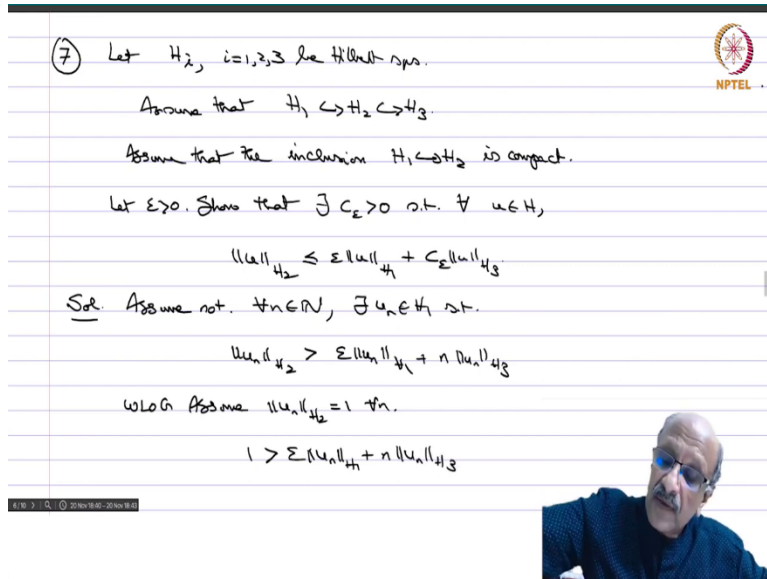 ⑦ Let Hᵢ, i=1,2,3 be Hilbert sps.
NPTEL
Assume that H₁ ↪ H₂ ↪ H₃.
Assume that the inclusion H₁ ↪ H₂ is compact.
Let ε>0. Show that ∃ C_ε>0 s.t. ∀ u∈H₁
‖u‖_H₂ ≤ ε‖u‖_H₁ + C_ε‖u‖_H₃.
Sol. Assume not. ∀n∈ℕ, ∃ uₙ∈H₁ s.t.
‖uₙ‖_H₂ > ε‖uₙ‖_H₁ + n‖uₙ‖_H₃
WLOG Assume ‖uₙ‖_H₂ = 1 ∀n.
1 > ε‖uₙ‖_H₁ + n‖uₙ‖_H₃
6/10 20 Nov 18:40 - 20 Nov 18:43